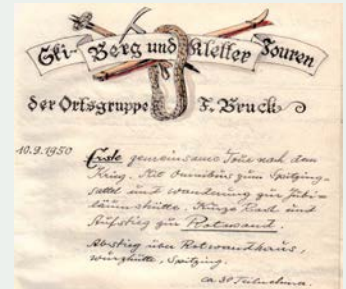 Ski- Berg und Kletter Touren
der Ortsgruppe F. Bruck
10.9.1950 Erste gemeinsame Tour nach dem
Krieg. Mit Omnibus zum Spitzing-
sattel und Wanderung zur Jubi-
läumshütte. Kurze Rast und
Aufstieg zur Rotwand.
Abstieg über Rotwandhaus,
Wurzhütte, Spitzing.
ca 30 Teilnehmer.